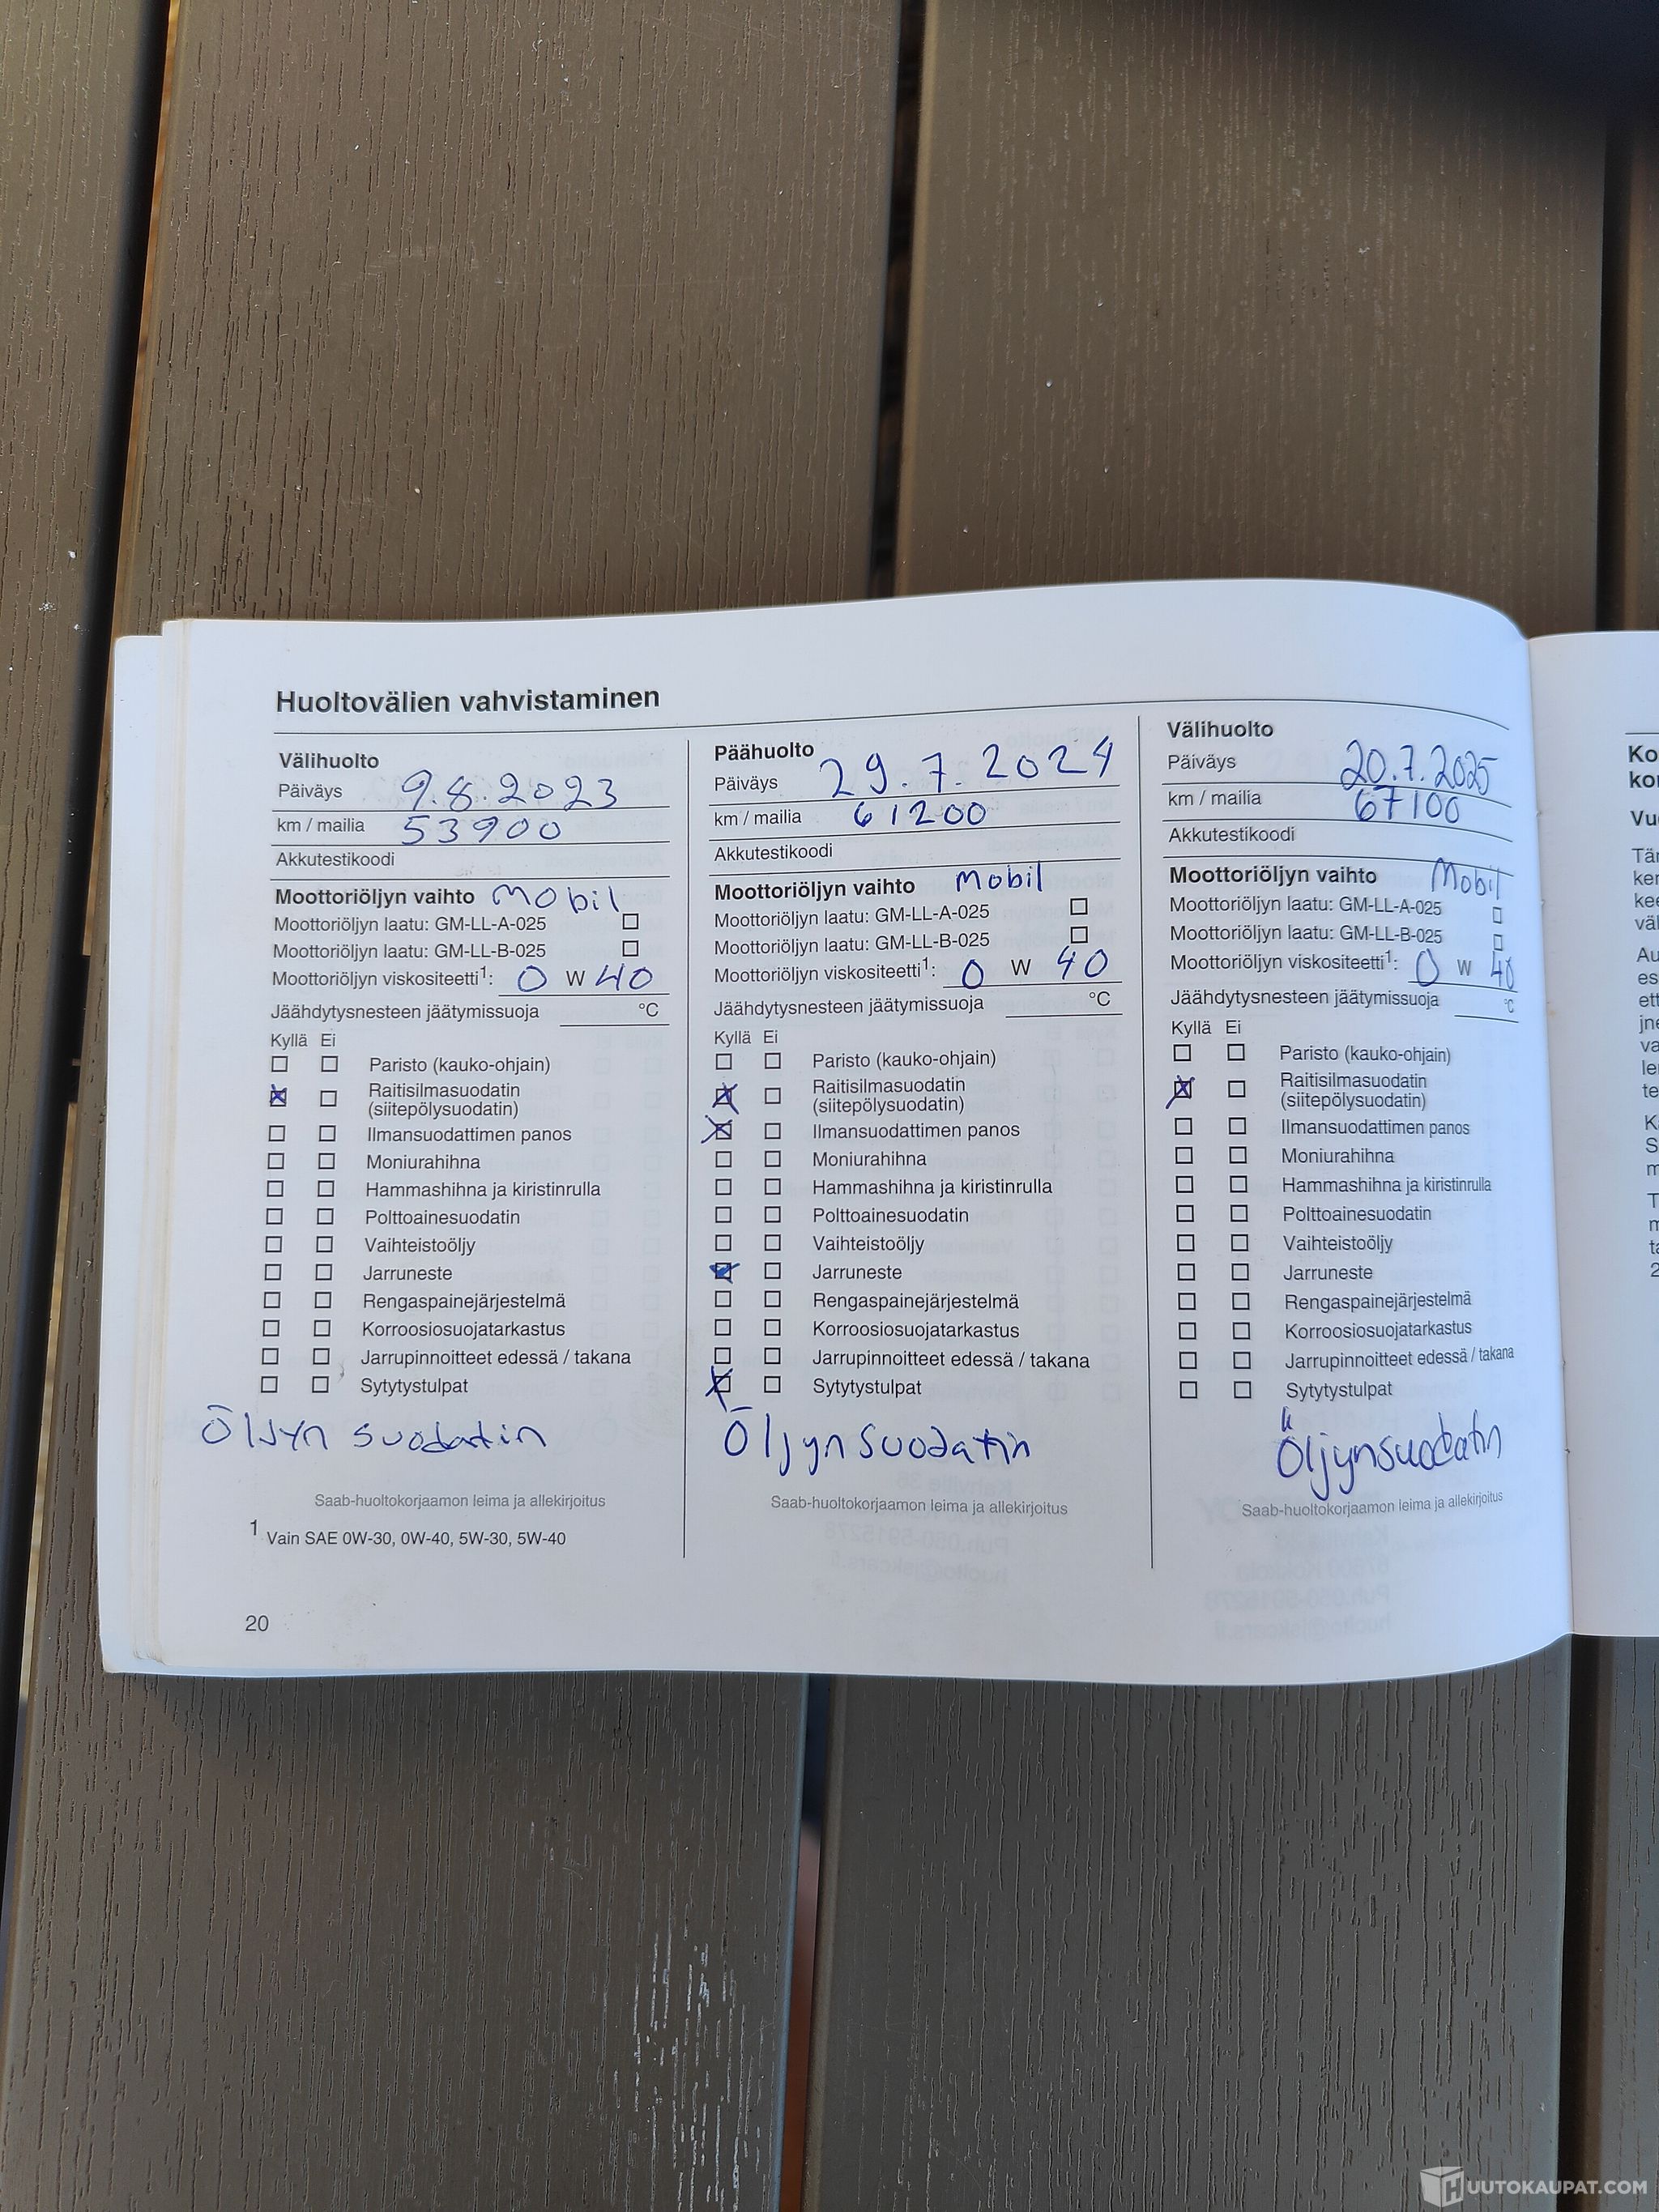 Huoltovälien vahvistaminen
Välihuolto
Päiväys 9.8.2023
km / mailia 53900
Akkutestikoodi
Moottoriöljyn vaihto Mobil
Moottoriöljyn laatu: GM-LL-A-025
Moottoriöljyn laatu: GM-LL-B-025
Moottoriöljyn viskositeetti1: 0 W 40
Jäähdytysnesteen jäätymissuoja °C
Kyllä Ei
Paristo (kauko-ohjain)
Raitisilmasuodatin
(siitepölysuodatin)
Ilmansuodattimen panos
Moniurahihna
Hammashihna ja kiristinrulla
Polttoainesuodatin
Vaihteistoöljy
Jarruneste
Rengaspainejärjestelmä
Korroosiosuojatarkastus
Jarrupinnoitteet edessä / takana
Sytytystulpat
Öljyn suodatin
Saab-huoltokorjaamon leima ja allekirjoitus
1 Vain SAE 0W-30, 0W-40, 5W-30, 5W-40
20
Päähuolto
Päiväys 29.7.2024
km / mailia 61200
Akkutestikoodi
Moottoriöljyn vaihto Mobil
Moottoriöljyn laatu: GM-LL-A-025
Moottoriöljyn laatu: GM-LL-B-025
Moottoriöljyn viskositeetti1: 0 W 40
Jäähdytysnesteen jäätymissuoja °C
Kyllä Ei
Paristo (kauko-ohjain)
Raitisilmasuodatin
(siitepölysuodatin)
Ilmansuodattimen panos
Moniurahihna
Hammashihna ja kiristinrulla
Polttoainesuodatin
Vaihteistoöljy
Jarruneste
Rengaspainejärjestelmä
Korroosiosuojatarkastus
Jarrupinnoitteet edessä / takana
Sytytystulpat
Öljynsuodatin
Saab-huoltokorjaamon leima ja allekirjoitus
Välihuolto
Päiväys 20.7.2025
km / mailia 67100
Akkutestikoodi
Moottoriöljyn vaihto Mobil
Moottoriöljyn laatu: GM-LL-A-025
Moottoriöljyn laatu: GM-LL-B-025
Moottoriöljyn viskositeetti1: 0 W 40
Jäähdytysnesteen jäätymissuoja °C
Kyllä Ei
Paristo (kauko-ohjain)
Raitisilmasuodatin
(siitepölysuodatin)
Ilmansuodattimen panos
Moniurahihna
Hammashihna ja kiristinrulla
Polttoainesuodatin
Vaihteistoöljy
Jarruneste
Rengaspainejärjestelmä
Korroosiosuojatarkastus
Jarrupinnoitteet edessä / takana
Sytytystulpat
Öljynsuodatin
Saab-huoltokorjaamon leima ja allekirjoitus
HUUTOKAUPAT.COM